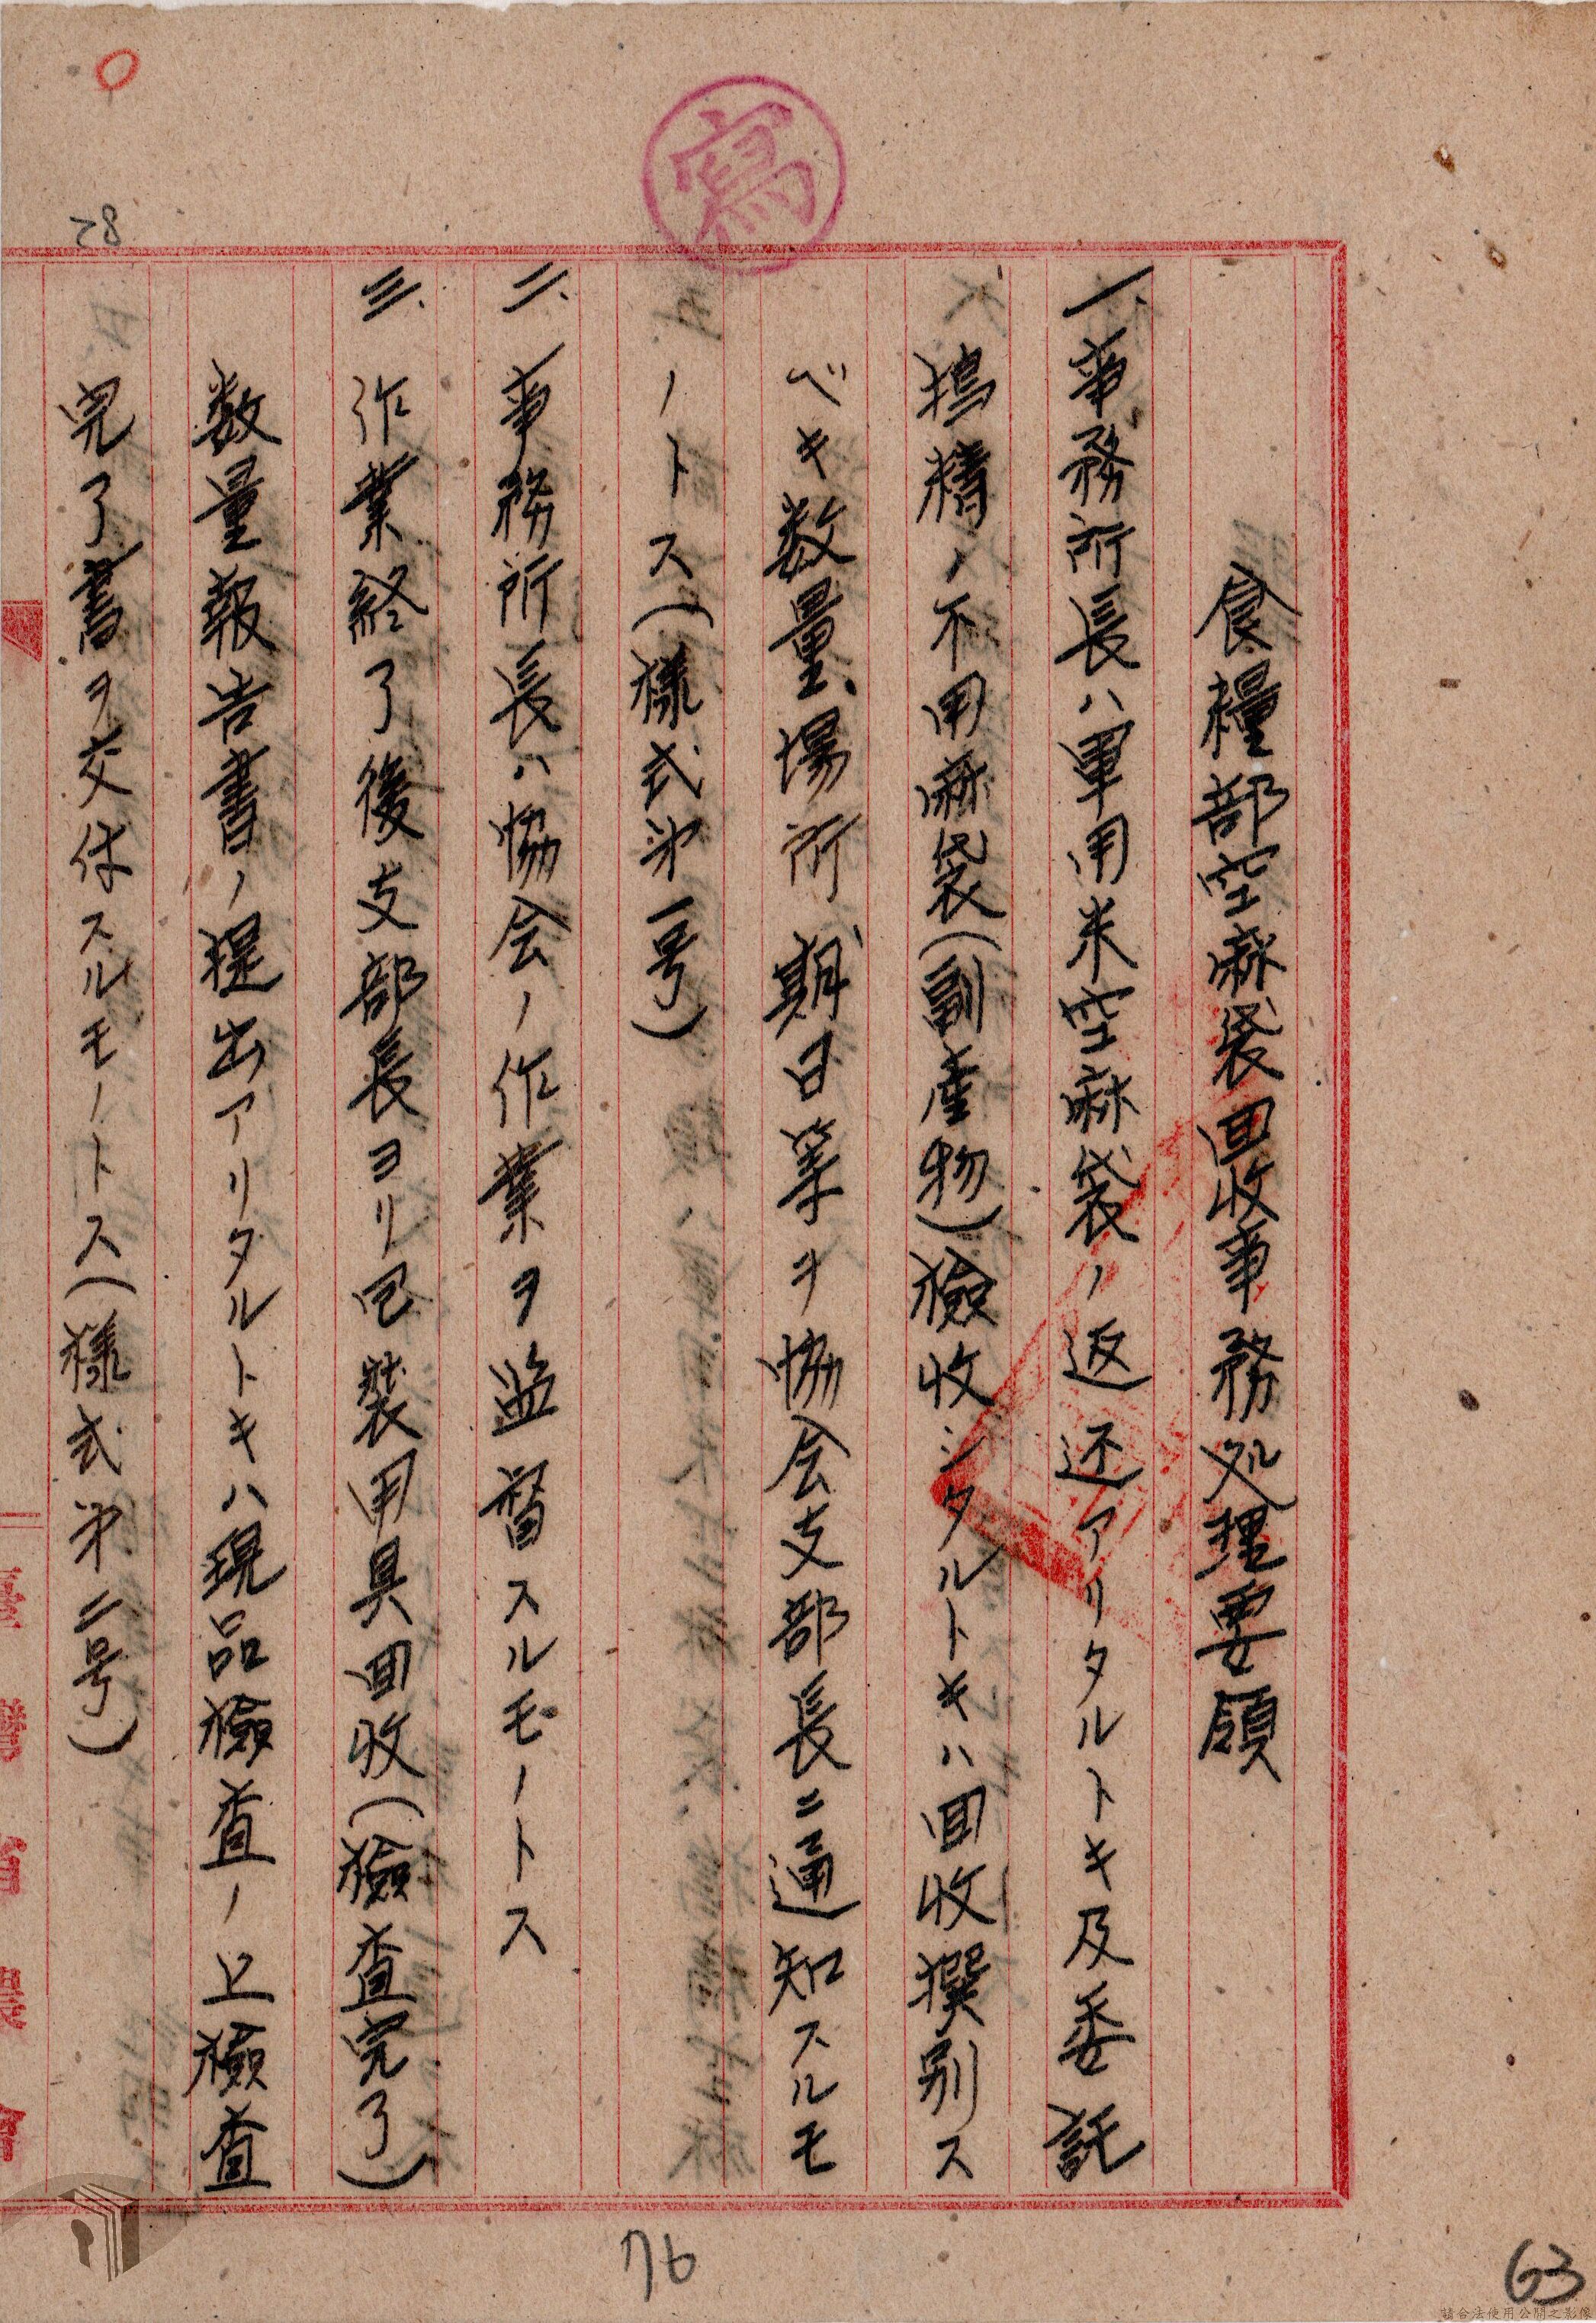 寫
28
食糧部空麻袋回收事務処理要領
一、事務所長ハ軍用米空麻袋ノ返还アリタルトキ及委託
搗精ノ不用麻袋(副産物)檢收シタルトキハ回收撰别ス
ベキ数量、場所、期日等ヲ協会支部長ニ通知スルモ
ノトス(様式第一号)
二、事務所長ハ協会ノ作業ヲ监督スルモノトス
三、作業終了後支部長ヨリ包装用具回收(檢査完了)
数量報告書ノ提出アリタルトキハ現品檢査ノ上檢査
完了書ヲ交付スルモノトス(様式第二号)
76
63
請合法使用公開之影像